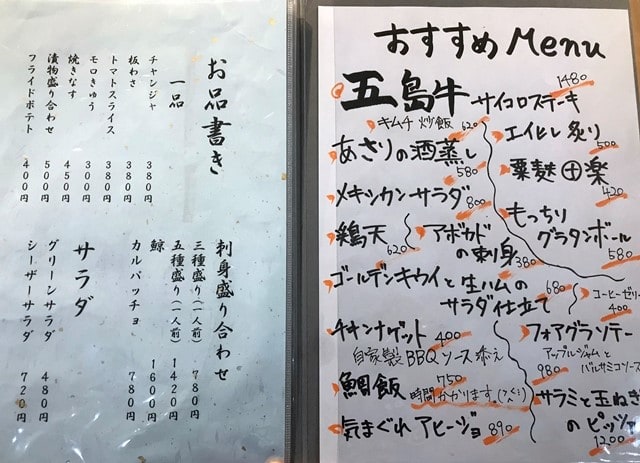 お品書き
一品
チャンジャ 380円
板わさ 380円
トマトスライス 380円
モロきゅう 300円
焼きなす 450円
漬物盛り合わせ 500円
フライドポテト 400円
刺身盛り合わせ
三種盛り(一人前) 780円
五種盛り(一人前) 1420円
鯨 1600円
カルパッチョ 780円
サラダ
グリーンサラダ 480円
シーザーサラダ 720円
おすすめ Menu
五島牛 サイコロステーキ 1480
キムチ炒飯 620
エイヒレ炙り 500
あさりの酒蒸し 580
粟麩田楽 420
メキシカンサラダ 800
もっちり
グラタンボール 580
鶏天 620
アボカド
の刺身 380
ゴールデンキウイと生ハムの
サラダ仕立て 680
コーヒーゼリー 400
チキンナゲット 400
自家製BBQソース添え
フォアグラソテー
アップルジャムと
バルサミコソース
980
鯛飯 750
時間かかります。
サラミと玉ねぎ
のピッツァ 1200
気まぐれアヒージョ 890